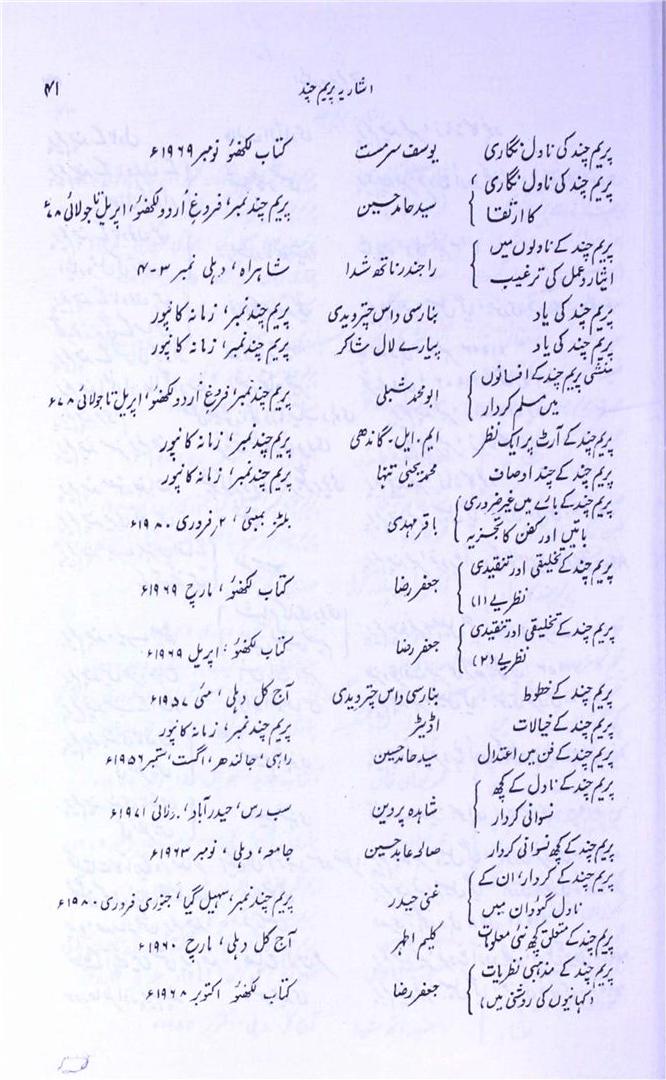 اشاریہ پریم چند ۴۱
پریم چند کی ناول نگاری یوسف سرمست کتاب لکھنؤ نومبر ۱۹۶۹ء
پریم چند کی ناول نگاری
کا ارتقا سید حامد حسین پریم چند نمبر، فروغ اُردو لکھنؤ، اپریل تا جولائی ۷۸ء
پریم چند کے ناولوں میں
ایثار و عمل کی ترغیب راجندر ناتھ شدا شاہراہ، دہلی نمبر ۳-۴
پریم چند کی یاد بنارسی داس چترویدی پریم چند نمبر، زمانہ کانپور
پریم چند کی یاد پیارے لال شاکر پریم چند نمبر، زمانہ کانپور
منشی پریم چند کے افسانوں
میں مسلم کردار ابو محمد شبلی پریم چند نمبر، فروغ اُردو لکھنؤ، اپریل تا جولائی ۷۸ء
پریم چند کے آرٹ پر ایک نظر ایم۔ ایل۔ گاندھی پریم چند نمبر، زمانہ کانپور
پریم چند کے چند اوصاف محمد یحییٰ تنہا پریم چند نمبر، زمانہ کانپور
پریم چند کے بارے میں غیر ضروری
باتیں اور کفن کا تجزیہ باقر مہدی بلٹز بمبئی، ۲ر فروری ۱۹۸۰ء
پریم چند کے تخلیقی اور تنقیدی
نظریے (۱) جعفر رضا کتاب لکھنؤ، مارچ ۱۹۶۹ء
پریم چند کے تخلیقی اور تنقیدی
نظریے (۲) جعفر رضا کتاب لکھنؤ، اپریل ۱۹۶۹ء
پریم چند کے خطوط بنارسی داس چترویدی آج کل دہلی، مئی ۱۹۵۷ء
پریم چند کے خیالات اڈیٹر پریم چند نمبر، زمانہ کانپور
پریم چند کے فن میں اعتدال سید حامد حسین راہی، جالندھر، اگست، ستمبر ۱۹۵۶ء
پریم چند کے ناول کے کچھ
نسوانی کردار شاہدہ پروین سب رس، حیدرآباد، جولائی ۱۹۷۱ء
پریم چند کے کچھ نسوانی کردار صالحہ عابد حسین جامعہ، دہلی، نومبر ۱۹۶۳ء
پریم چند کے کردار، ان کے
ناول گئودان میں غنی حیدر پریم چند نمبر، سہیل گیا، جنوری فروری ۱۹۸۰ء
پریم چند کے متعلق کچھ نئی معلومات کلیم اظہر آج کل دہلی، مارچ ۱۹۶۰ء
پریم چند کے مذہبی نظریات
(کہانیوں کی روشنی میں) جعفر رضا کتاب لکھنؤ اکتوبر ۱۹۶۸ء